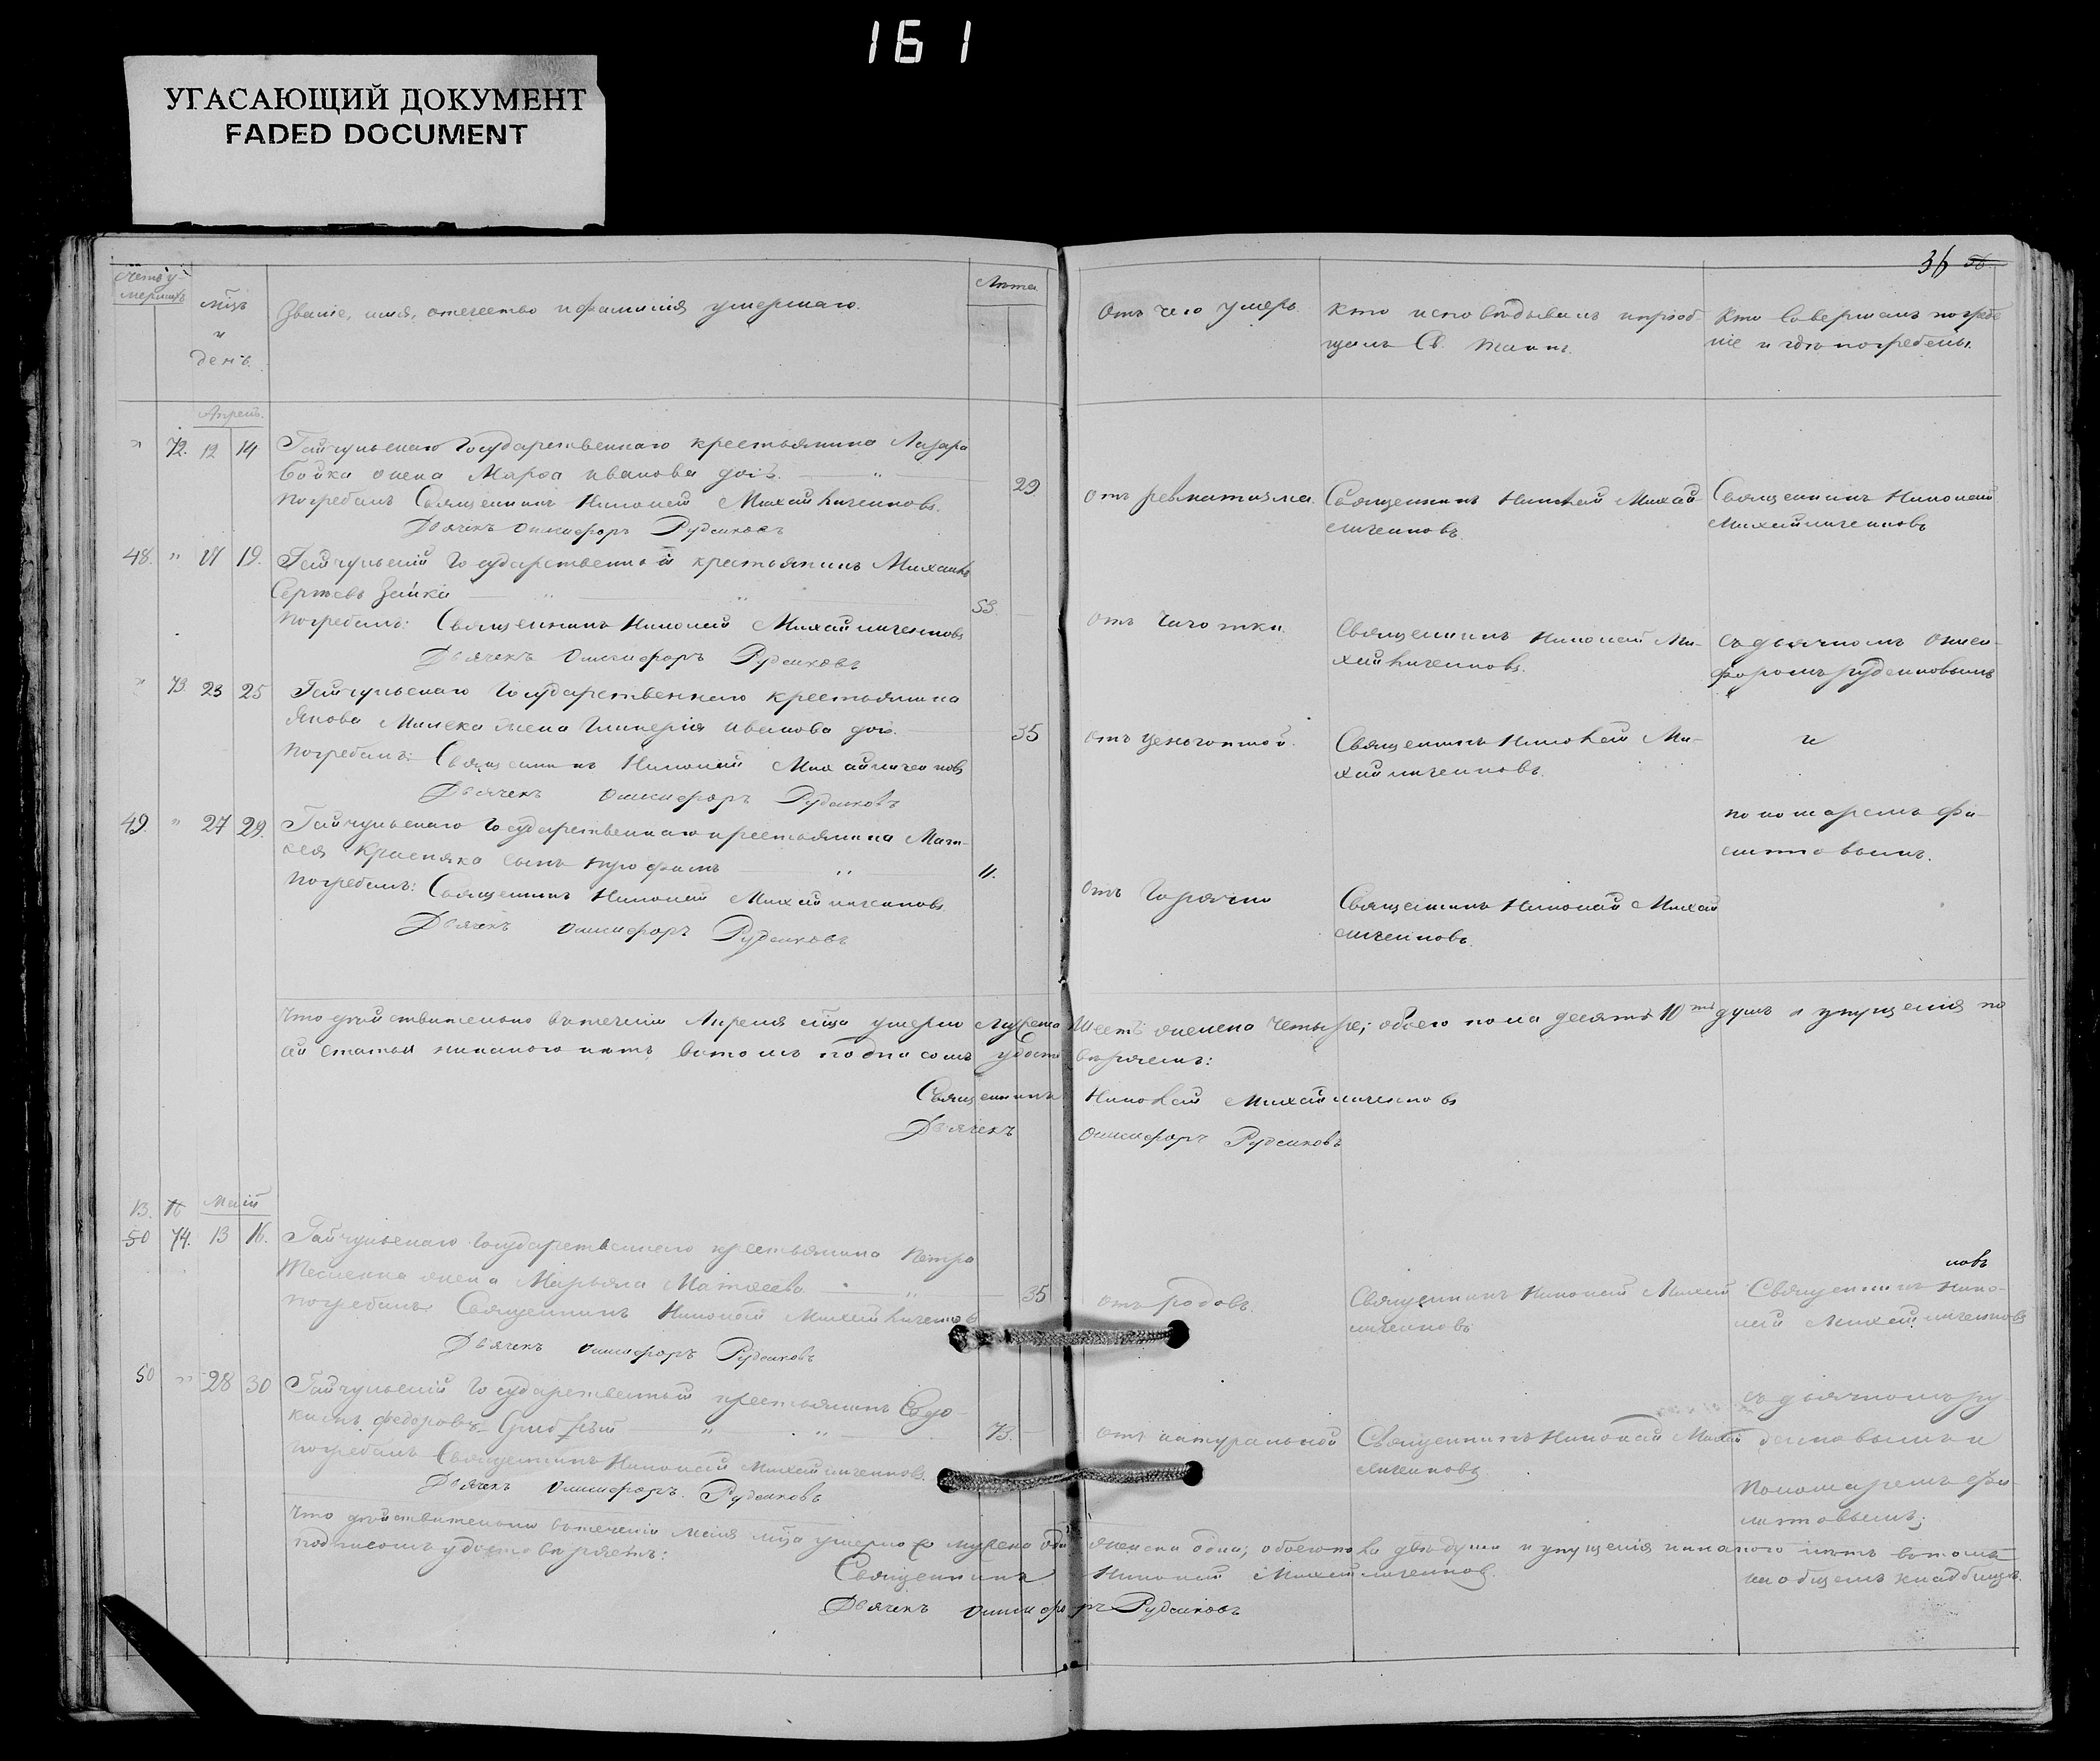 161
УГАСАЮЩИЙ ДОКУМЕНТ
FADED DOCUMENT
36
Счетъ у-
мершихъ
мц̃ъ
и
день.
Званіе, имя, отечество и фамилія умершаго.
Лѣта
Отъ чего умеръ.
Кто исповѣдывалъ и пріоб-
щалъ Св. Таинъ.
Кто совершалъ погребе
ніе и гдѣ погребены.
Апрель.
" 72. 12 14 Гайчульскаго Государственнаго крестьянина Лазара
Бойка жена Марѳа Иванова дочь. " 29
Погребалъ Священникъ Николай Михайличенковъ.
Дьячекъ Онисифоръ Рудаковъ
Отъ ревматизма.
Священникъ Николай Михай-
личенковъ.
Священникъ Николай
Михайличенковъ
48. " 17 19. Гайчульскій Государственный крестьянинъ Михаилъ
Сергѣевъ Зайка " " 53.
Погребалъ: Священникъ Николай Михайличенковъ
Дьячекъ Онисифоръ Рудаковъ
Отъ Чахотки.
Священникъ Николай Ми-
хайличенковъ.
съ дьячкомъ Ониси-
форомъ Рудаковымъ
" 73. 23 25 Гайчульскаго Государственнаго крестьянина
Якова Милека жена Гликерія Иванова дочь. 35
Погребалъ: Священникъ Николай Михайличенковъ
Дьячекъ Онисифоръ Рудаковъ
Священникъ Николай Ми-
хайличенковъ.
и
49. " 27 29. Гайчульскаго Государственнаго крестьянина Мат-
ѳея Красняка сынъ Трофимъ " 11.
Погребалъ: Священникъ Николай Михайличенковъ
Дьячекъ Онисифоръ Рудаковъ
Отъ Горячки
Священникъ Николай Михай
личенковъ.
пономаремъ Фи-
литовымъ.
Что дѣйствительно въ теченіи Апреля мц̃а умерло мужеска Шесть женска Четыре; обоего пола десять 10ть душъ и упущенія по
сей статьи никакого нѣтъ въ томъ подписомъ удостовѣряемъ:
Священникъ Николай Михайличенковъ
Дьячекъ Онисифоръ Рудаковъ
Маій
50 74. 13 16. Гайчульскаго Государственнаго крестьянина Петра
Тесленка жена Марьяна Матѳеева " 35
погребалъ Священникъ Николай Михайличенковъ
Дьячекъ Онисифоръ Рудаковъ
отъ родовъ.
Священникъ Николай Михай
личенковъ
новъ
Священникъ Нико-
лай Михайличенковъ
50 " 28 30 Гайчульскій Государственный крестьянинъ Евдо-
кимъ Федоровъ " " 73.
погребалъ Священникъ Николай Михайличенковъ.
Дьячекъ Онисифоръ Рудаковъ
отъ натуральной
Священникъ Николай Михай
личенковъ
съ дьячкомъ Ру-
даковымъ и
Пономаремъ Фи-
литовымъ;
на общемъ кладбищѣ.
Что дѣйствительно въ теченіи Маія мц̃а умерло мужеска одн женска одна; обоего пола двѣ души и упущенія никакого нѣтъ въ томъ
подписомъ удостовѣряемъ:
Священникъ Николай Михайличенковъ.
Дьячекъ Онисифоръ Рудаковъ